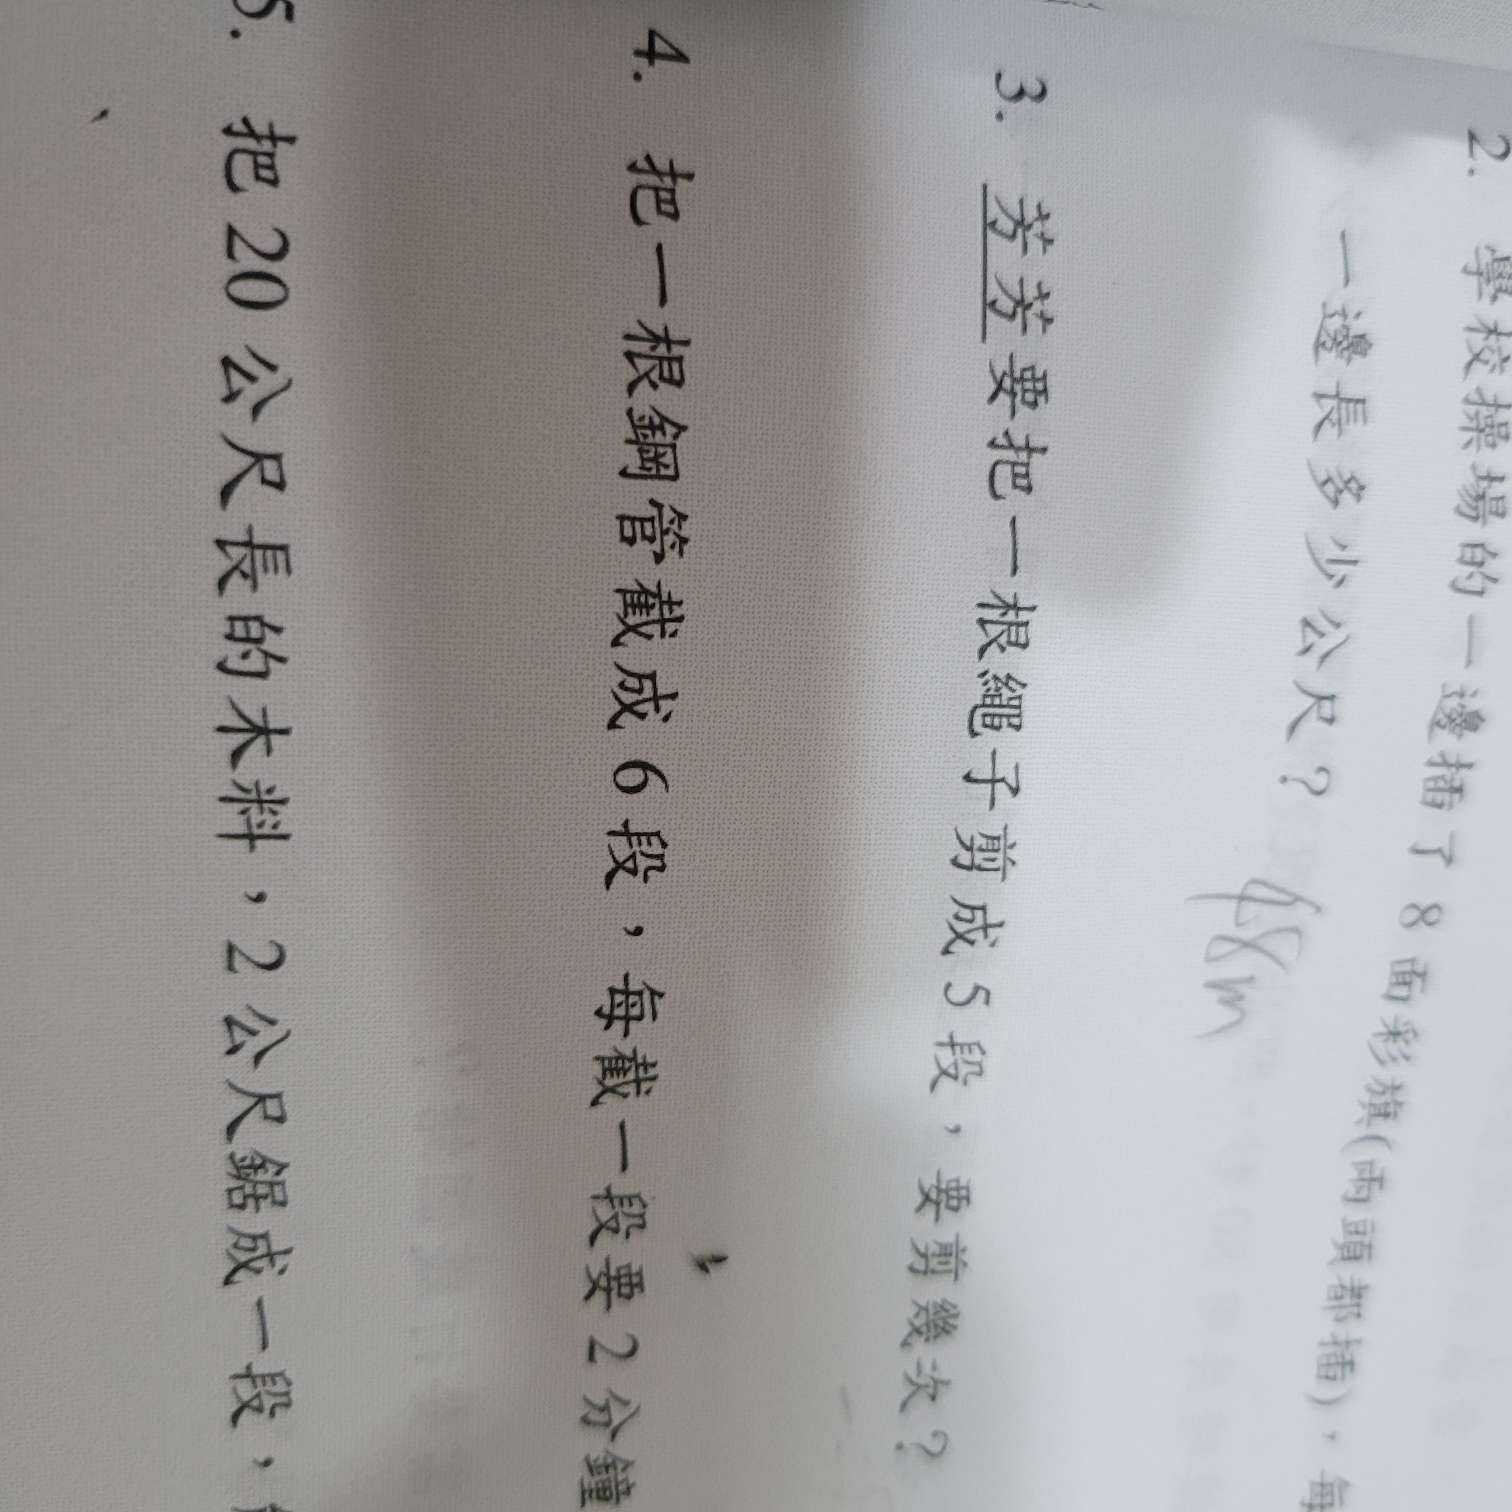 2. 學校操場的一邊插了 8 面彩旗(兩頭都插),每
一邊長多少公尺?
48m
3. 芳芳要把一根繩子剪成 5 段,要剪幾次?
4. 把一根鋼管截成 6 段,每截一段要 2 分鐘
5. 把 20 公尺長的木料,2 公尺鋸成一段,